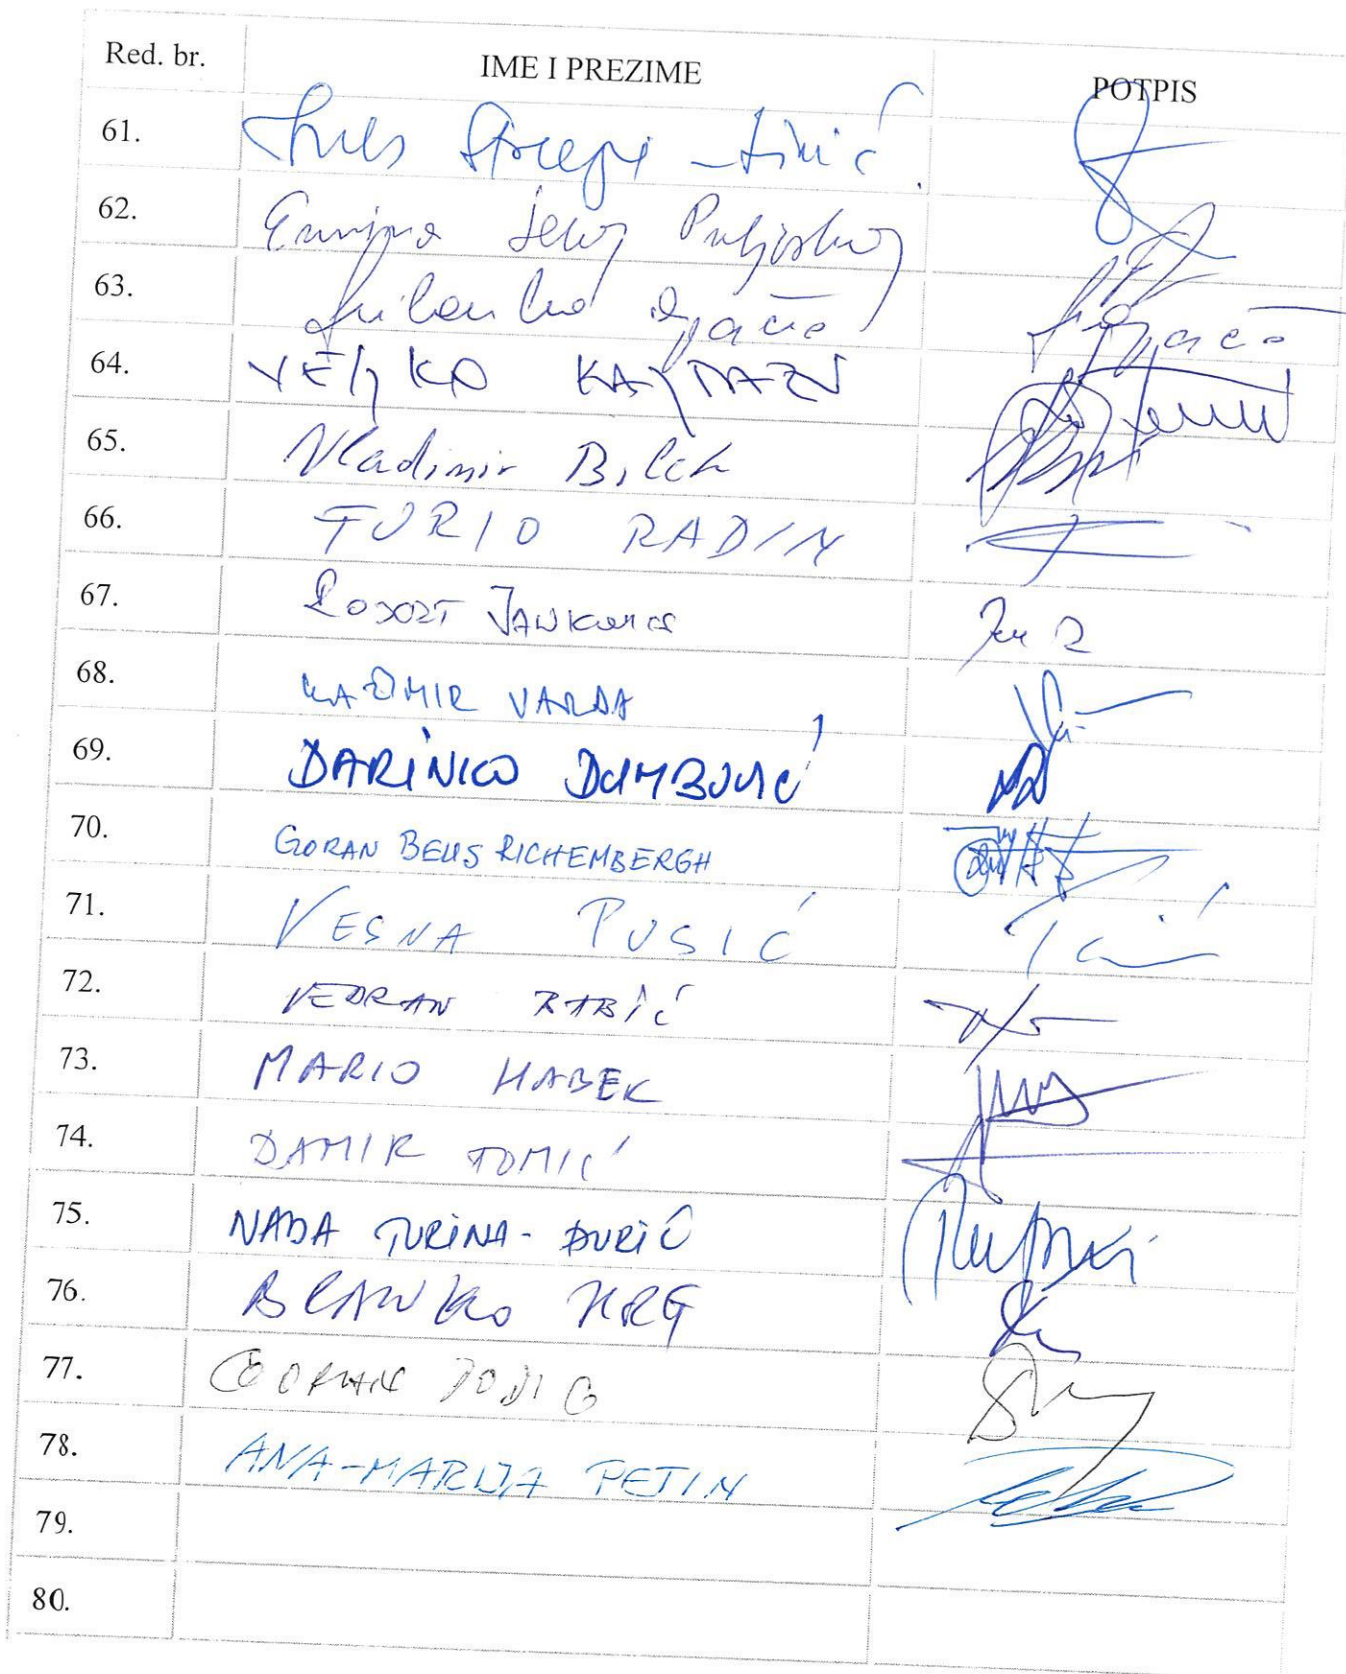 Red. br. IME I PREZIME POTPIS
61. Ines Strenja-Linić
62. Ermina Lekaj Prljaskaj
63. Milanka Opačić
64. VELJKO KAJTAZI
65. Vladimir Bilek
66. FURIO RADIN
67. ROBERT JANKOVICS
68. KAŽIMIR VARDA
69. DARINKO DUMBOVIĆ
70. GORAN BEUS RICHEMBERGH
71. VESNA PUSIĆ
72. VEDRAN BABIĆ
73. MARIO HABEK
74. DAMIR TOMIĆ
75. NADA TURINA-ĐURIĆ
76. BRANKO HRG
77. GORAN DODIG
78. ANA-MARIJA PETIN
79.
80.